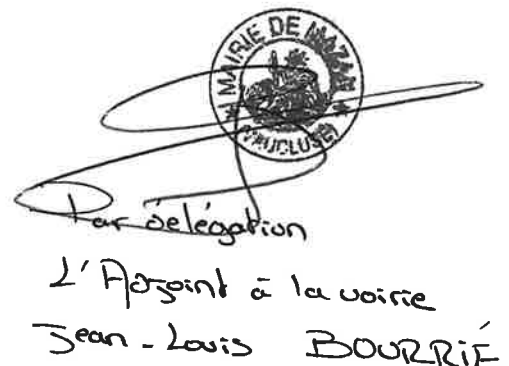 MAIRIE DE MAZAN
(VAUCLUSE)
Par délégation
L'Adjoint à la voirie
Jean-Louis BOURRIÉ